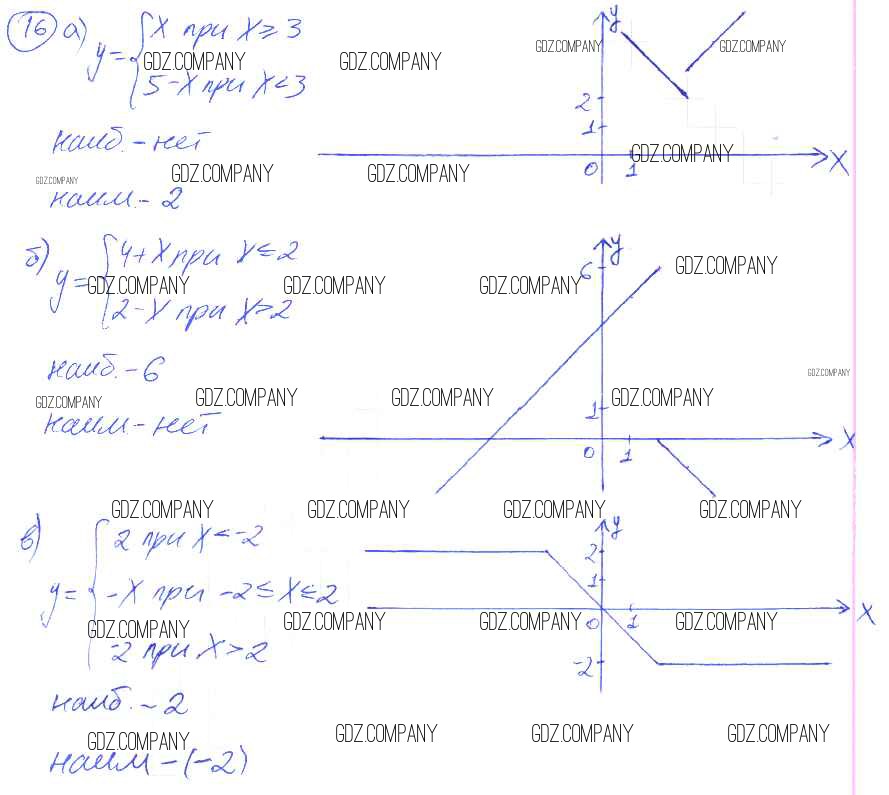 16 а) y = { x при x ≥ 3
5 - x при x < 3
наиб. - нет
наим. - 2
y
2
1
0 1 x
GDZ.COMPANY GDZ.COMPANY GDZ.COMPANY GDZ.COMPANY
GDZ.COMPANY
GDZ.COMPANY GDZ.COMPANY GDZ.COMPANY
б) y = { 4 + x при x ≤ 2
2 - x при x > 2
наиб. - 6
наим - нет
y
6
1
0 1 x
GDZ.COMPANY
GDZ.COMPANY GDZ.COMPANY GDZ.COMPANY
GDZ.COMPANY
GDZ.COMPANY GDZ.COMPANY GDZ.COMPANY GDZ.COMPANY
GDZ.COMPANY GDZ.COMPANY GDZ.COMPANY GDZ.COMPANY
в) y = { 2 при x < -2
-x при -2 ≤ x ≤ 2
-2 при x > 2
наиб. - 2
наим - (-2)
y
2
1
0 1 x
-2
GDZ.COMPANY GDZ.COMPANY GDZ.COMPANY GDZ.COMPANY
GDZ.COMPANY GDZ.COMPANY GDZ.COMPANY GDZ.COMPANY